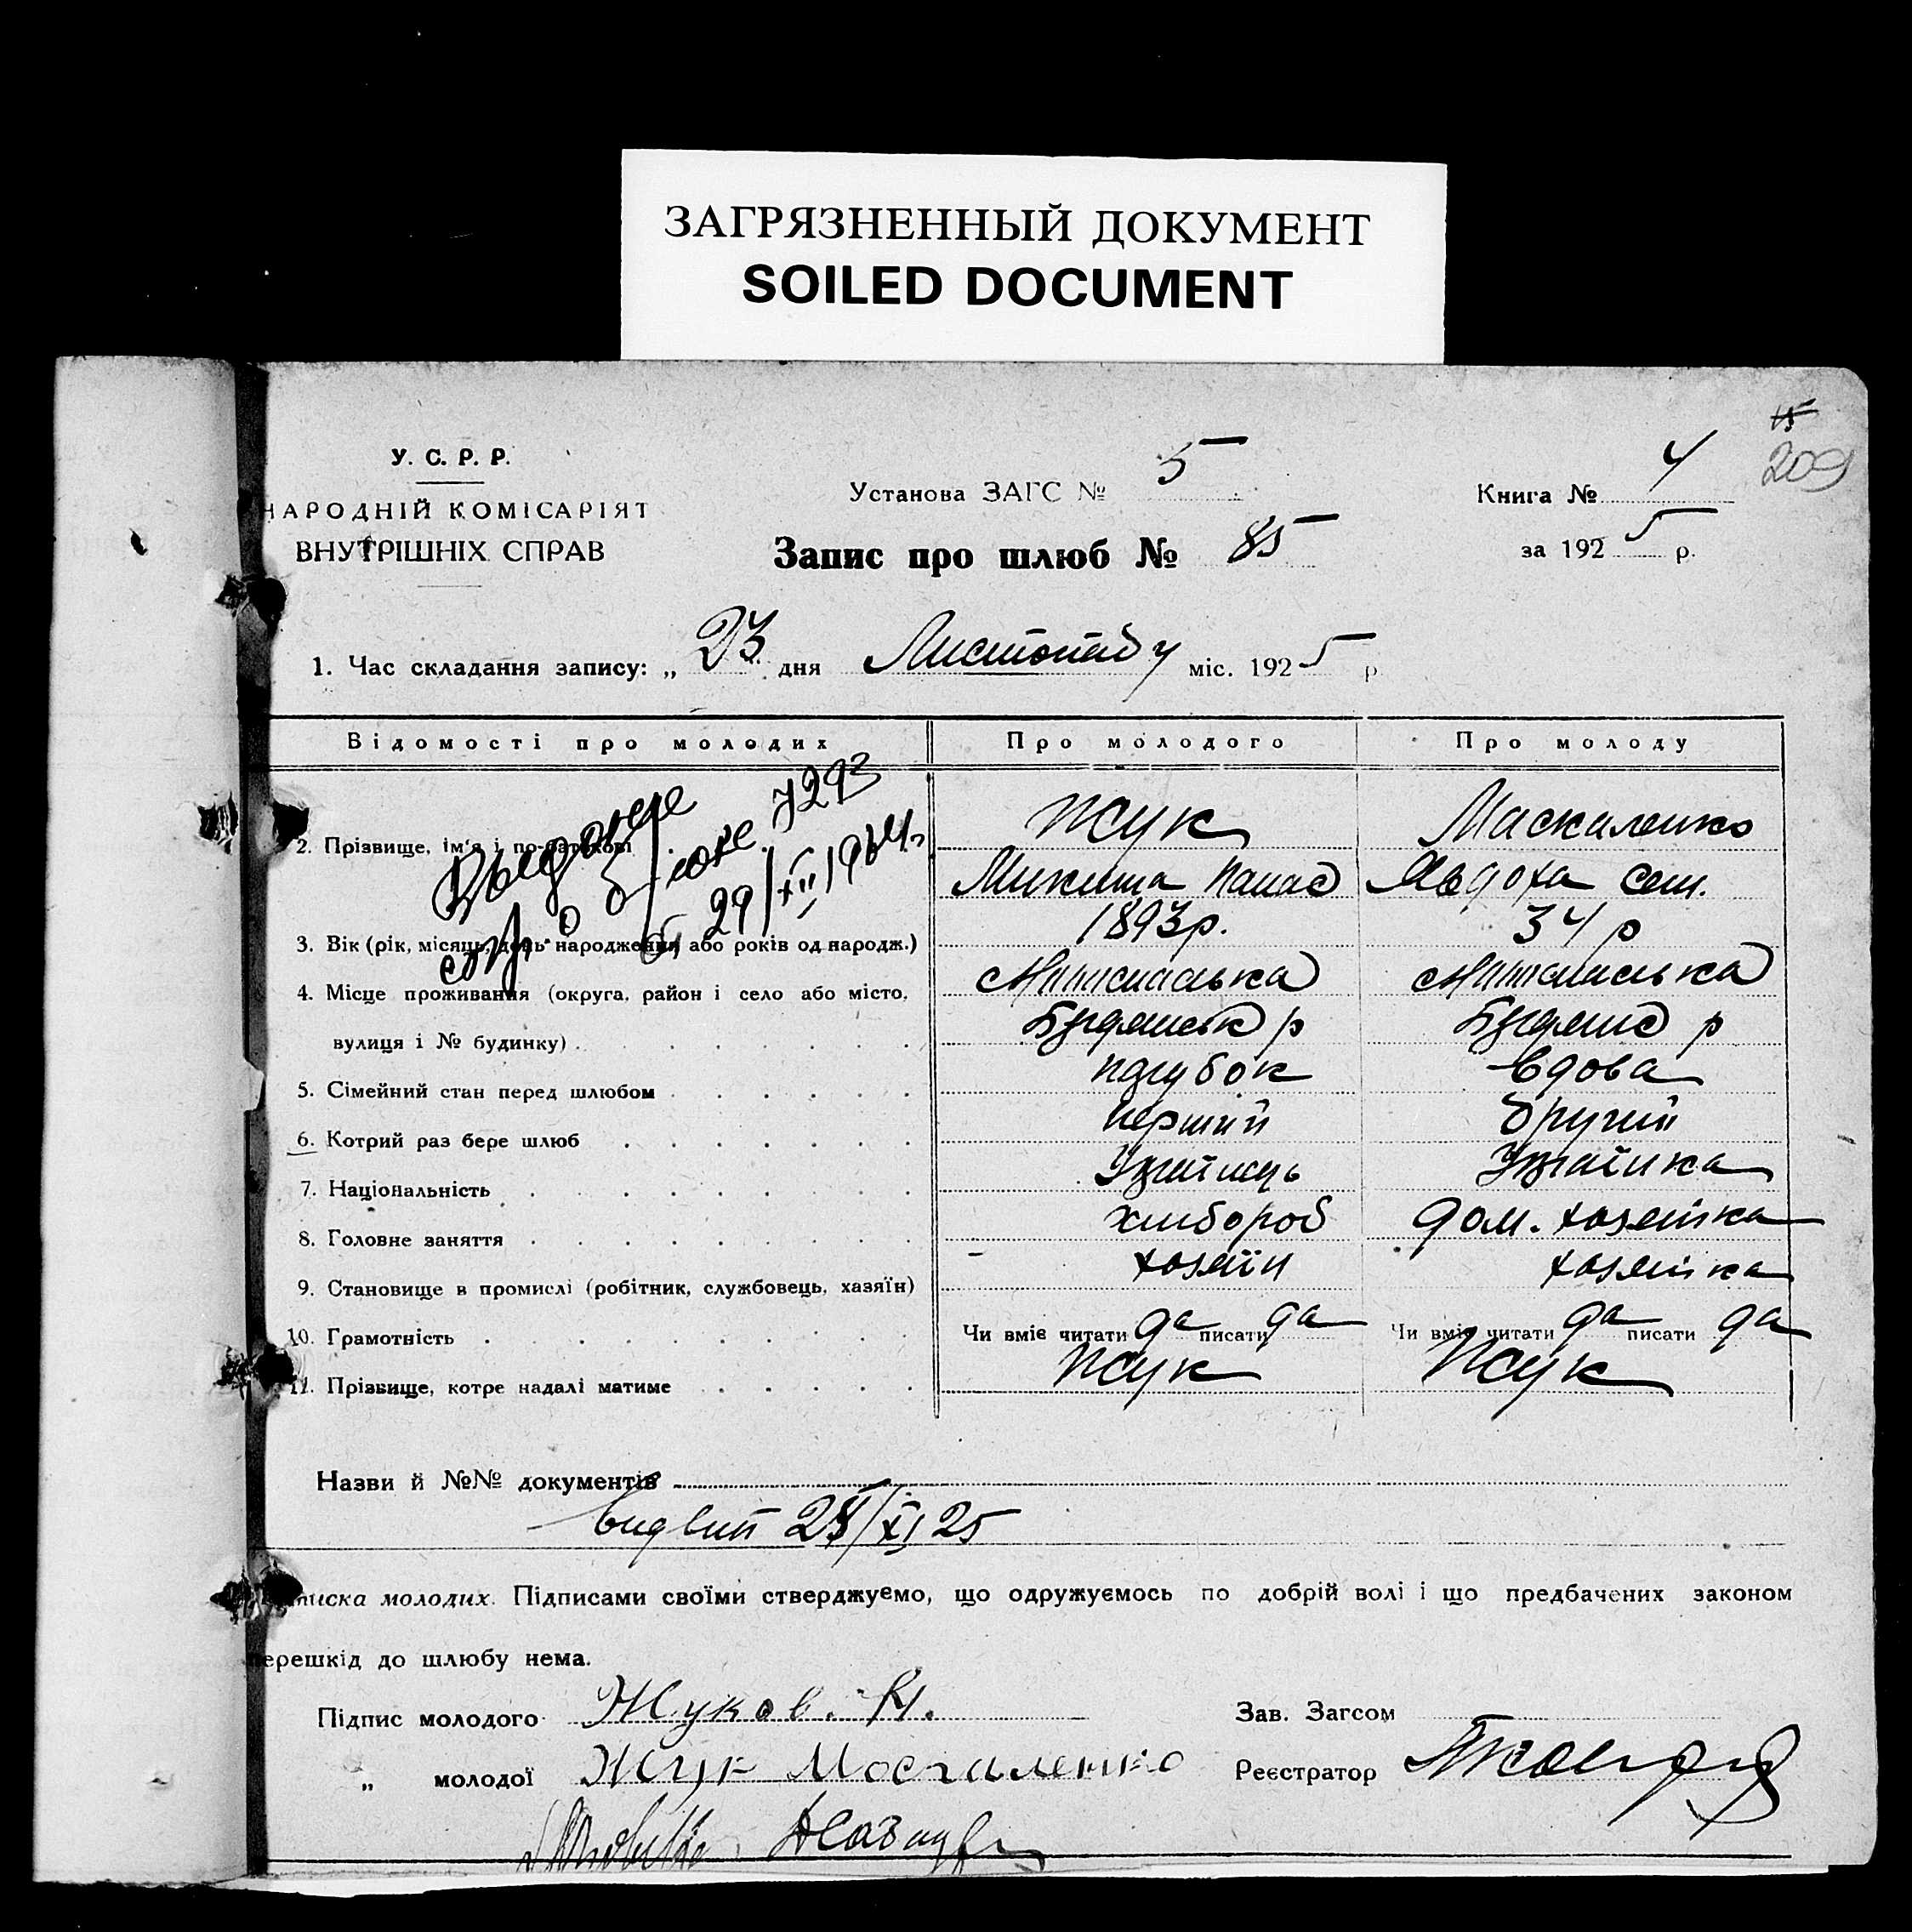 ЗАГРЯЗНЕННЫЙ ДОКУМЕНТ
SOILED DOCUMENT
15
209
У. С. Р. Р.
НАРОДНІЙ КОМІСАРІЯТ
ВНУТРІШНІХ СПРАВ
Установа ЗАГС № 5
Книга № 4
Запис про шлюб № 85
за 1925 р.
1. Час складання запису: „ 23 дня Листопаду міс. 1925 р
Відомості про молодих Про молодого Про молоду
2. Прізвище, ім'я і по-батькові Жук Маскаленко
Микита Панас Явдоха Сем.
3. Вік (рік, місяць, день народження або років од народж.) 1893р. 34 р
4. Місце проживання (округа, район і село або місто,
вулиця і № будинку)
5. Сімейний стан перед шлюбом парубок вдова
6. Котрий раз бере шлюб перший другий
7. Національність Украінець Украінка
8. Головне заняття хлібороб дом. хозяйка
9. Становище в промислі (робітник, службовець, хазяїн) хозяїн хозяйка
10. Грамотність Чи вміє читати да писати да Чи вміє читати да писати да
11. Прізвище, котре надалі матиме Жук Жук
29/XII 1964г.
Назви й №№ документів
25
писка молодих. Підписами своїми стверджуємо, що одружуємось по добрій волі і що предбачених законом
перешкід до шлюбу нема.
Підпис молодого Жуков. Н. Зав. Загсом
„ молодої Жук Москаленко Реєстратор